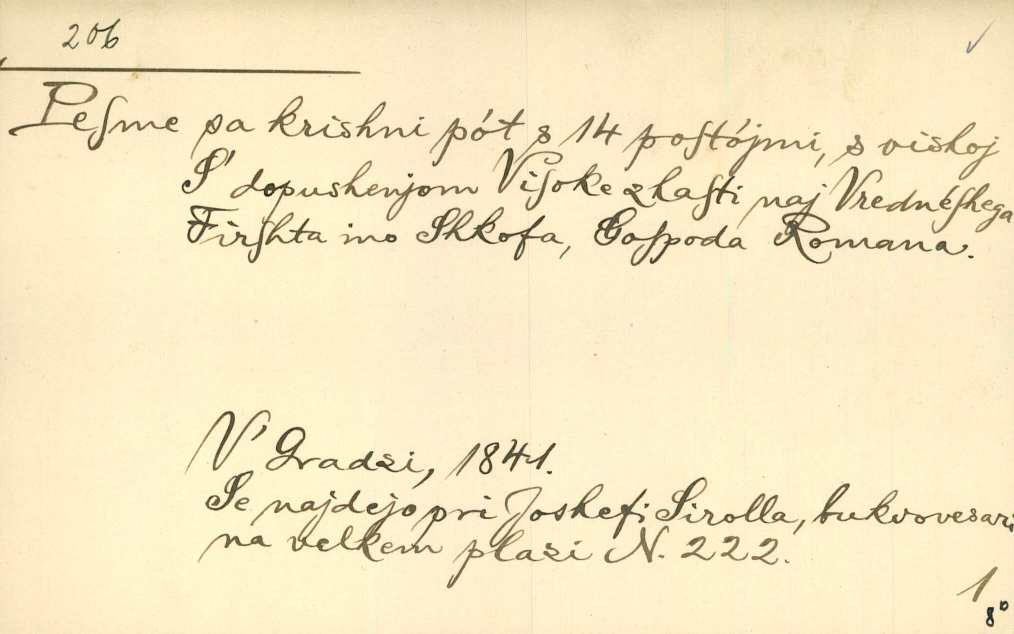 206
Peſme sa krishni pót s 14 poſtójmi, s vishoj
S' dopushenjom Viſoke zhaſti naj Vrednéſhega
Firſhta ino Shkofa, Goſpoda Romana.
V' Gradzi, 1841.
Se najdejo pri Joshefi Sirolla, bukvovesari
na velkem plazi N. 222.
1
8°